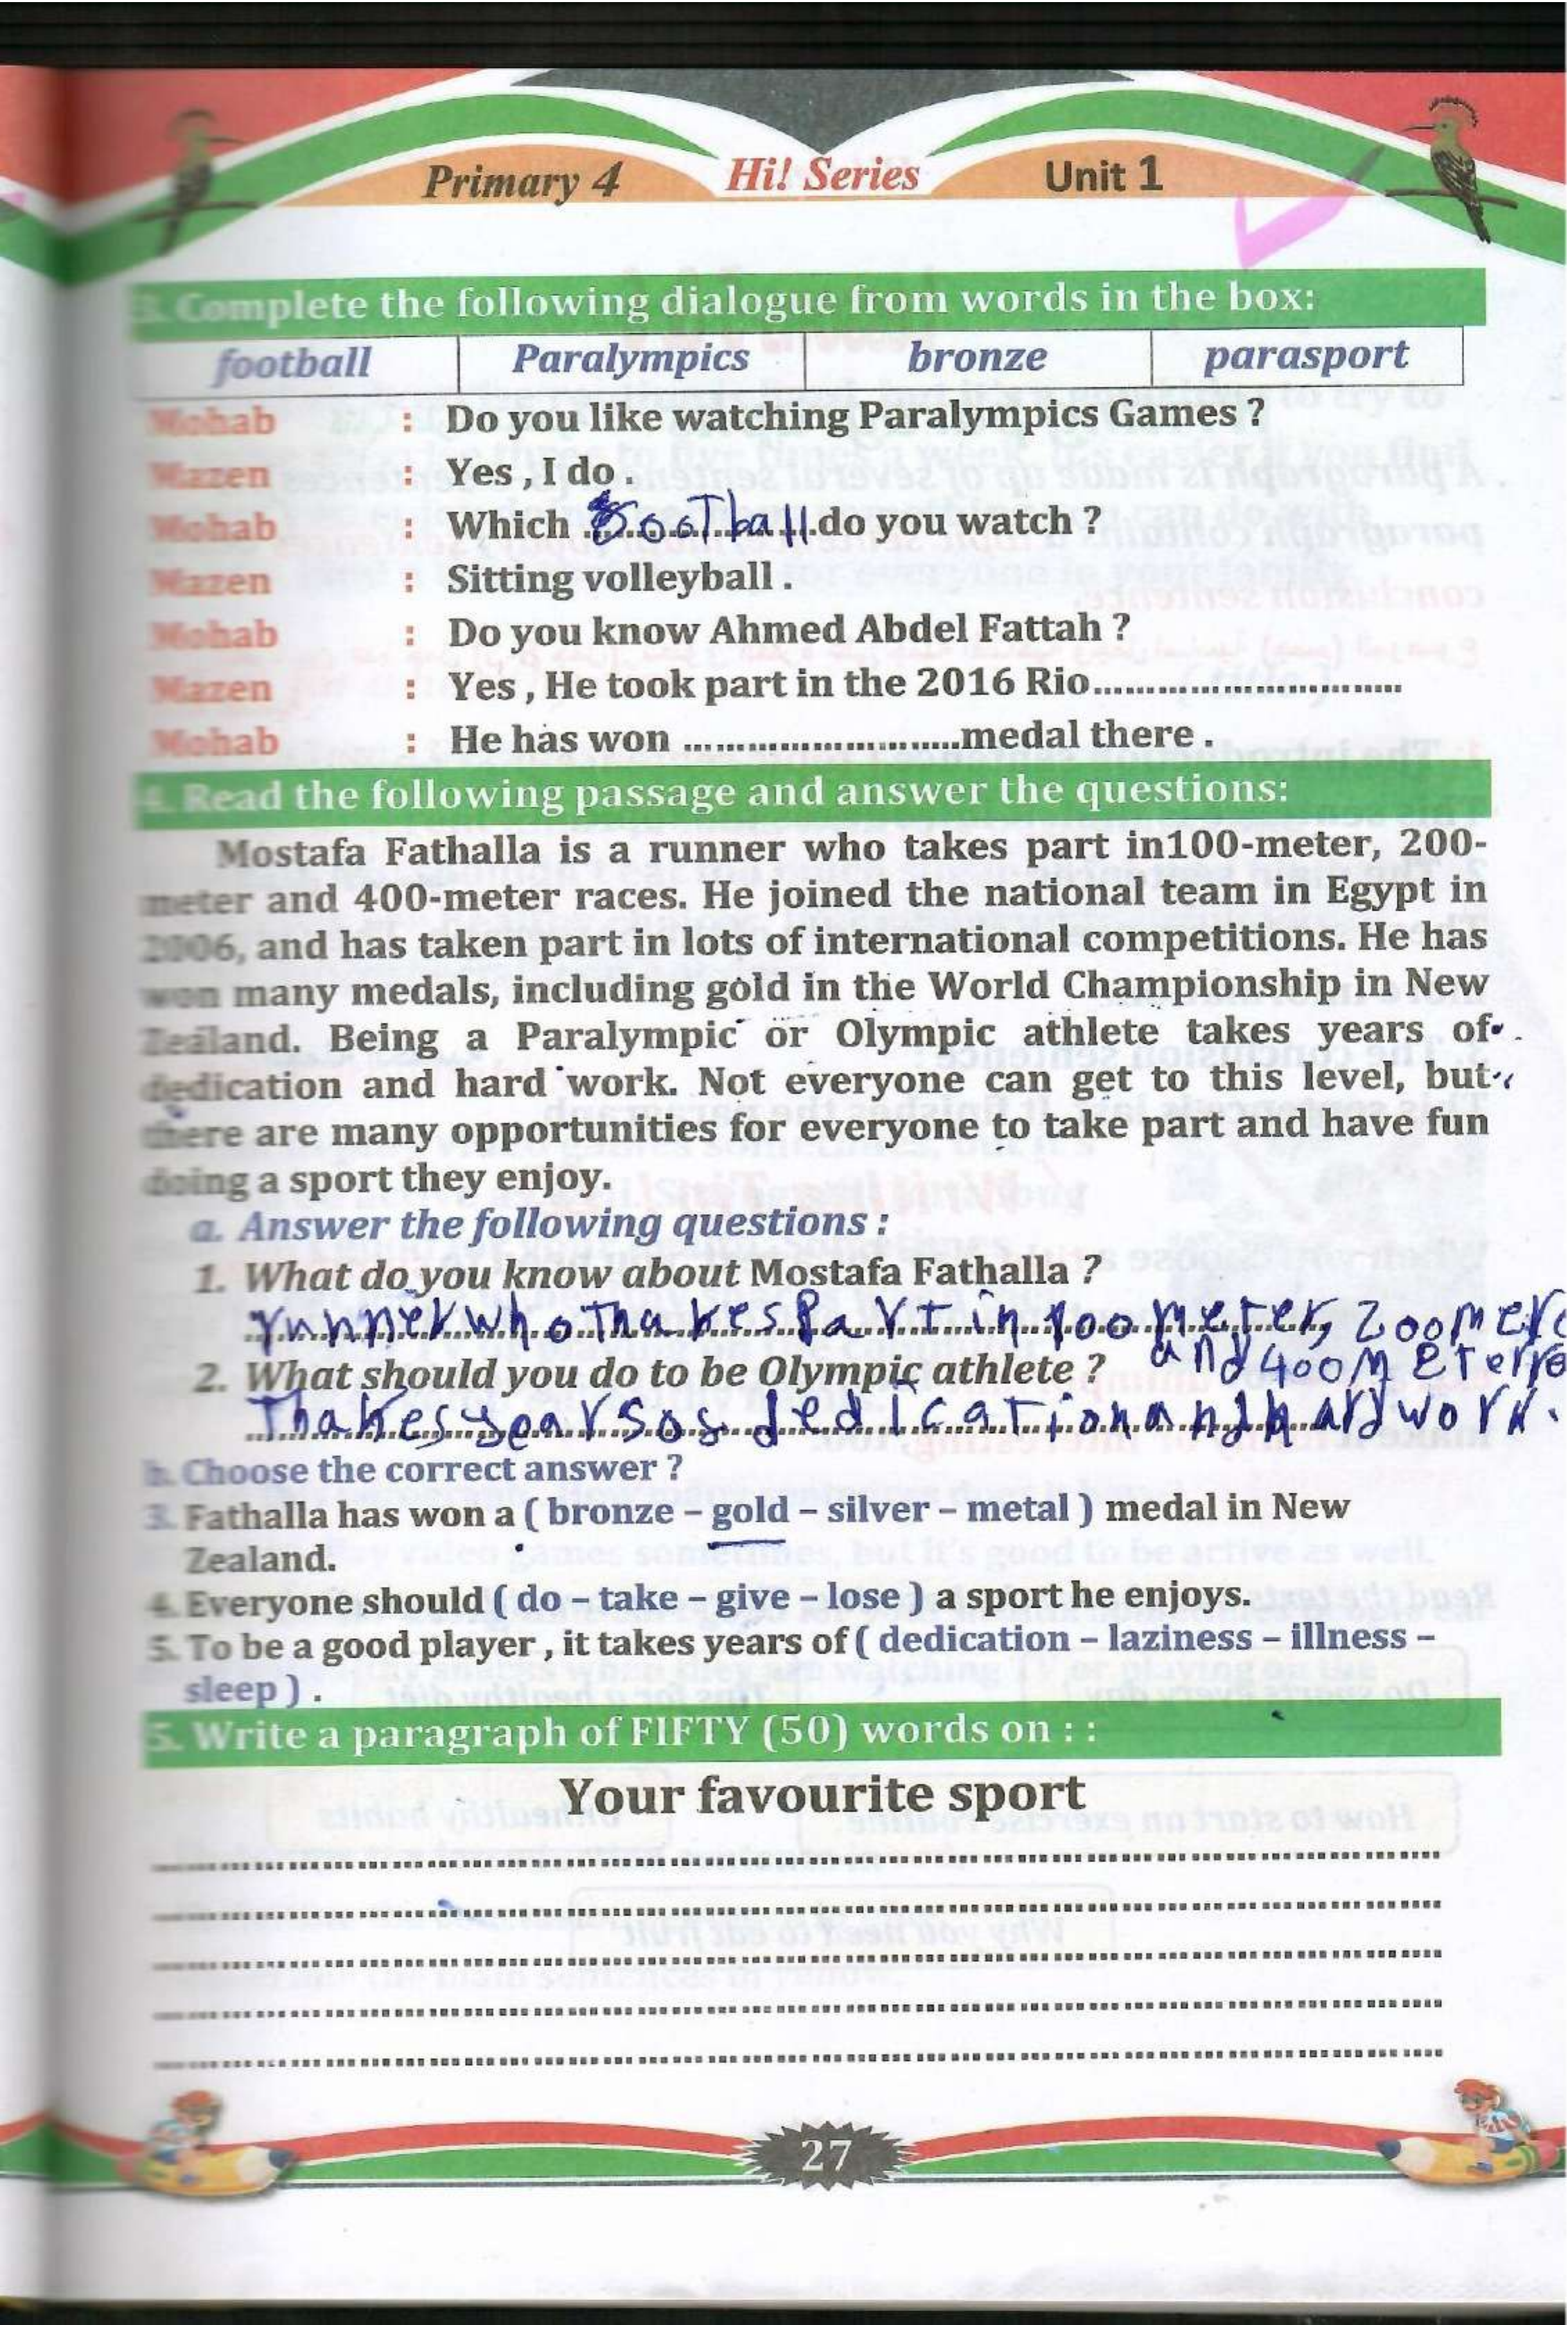 Primary 4 Hi! Series Unit 1
3. Complete the following dialogue from words in the box:
football Paralympics bronze parasport
Mohab : Do you like watching Paralympics Games ?
Mazen : Yes , I do .
Mohab : Which football do you watch ?
Mazen : Sitting volleyball .
Mohab : Do you know Ahmed Abdel Fattah ?
Mazen : Yes , He took part in the 2016 Rio..............................
Mohab : He has won ...........................medal there .
4. Read the following passage and answer the questions:
Mostafa Fathalla is a runner who takes part in100-meter, 200-
meter and 400-meter races. He joined the national team in Egypt in
2006, and has taken part in lots of international competitions. He has
won many medals, including gold in the World Championship in New
Zealand. Being a Paralympic or Olympic athlete takes years of
dedication and hard work. Not everyone can get to this level, but
there are many opportunities for everyone to take part and have fun
doing a sport they enjoy.
a. Answer the following questions :
1. What do you know about Mostafa Fathalla ?
runner who Thakes Part in 100 meter, 200 meter
2. What should you do to be Olympic athlete ? and 400 Meter
Thakes years of dedication and hard work.
b. Choose the correct answer ?
3. Fathalla has won a ( bronze – gold – silver – metal ) medal in New
Zealand.
4. Everyone should ( do – take – give – lose ) a sport he enjoys.
5. To be a good player , it takes years of ( dedication – laziness – illness –
sleep ) .
5. Write a paragraph of FIFTY (50) words on : :
Your favourite sport
27